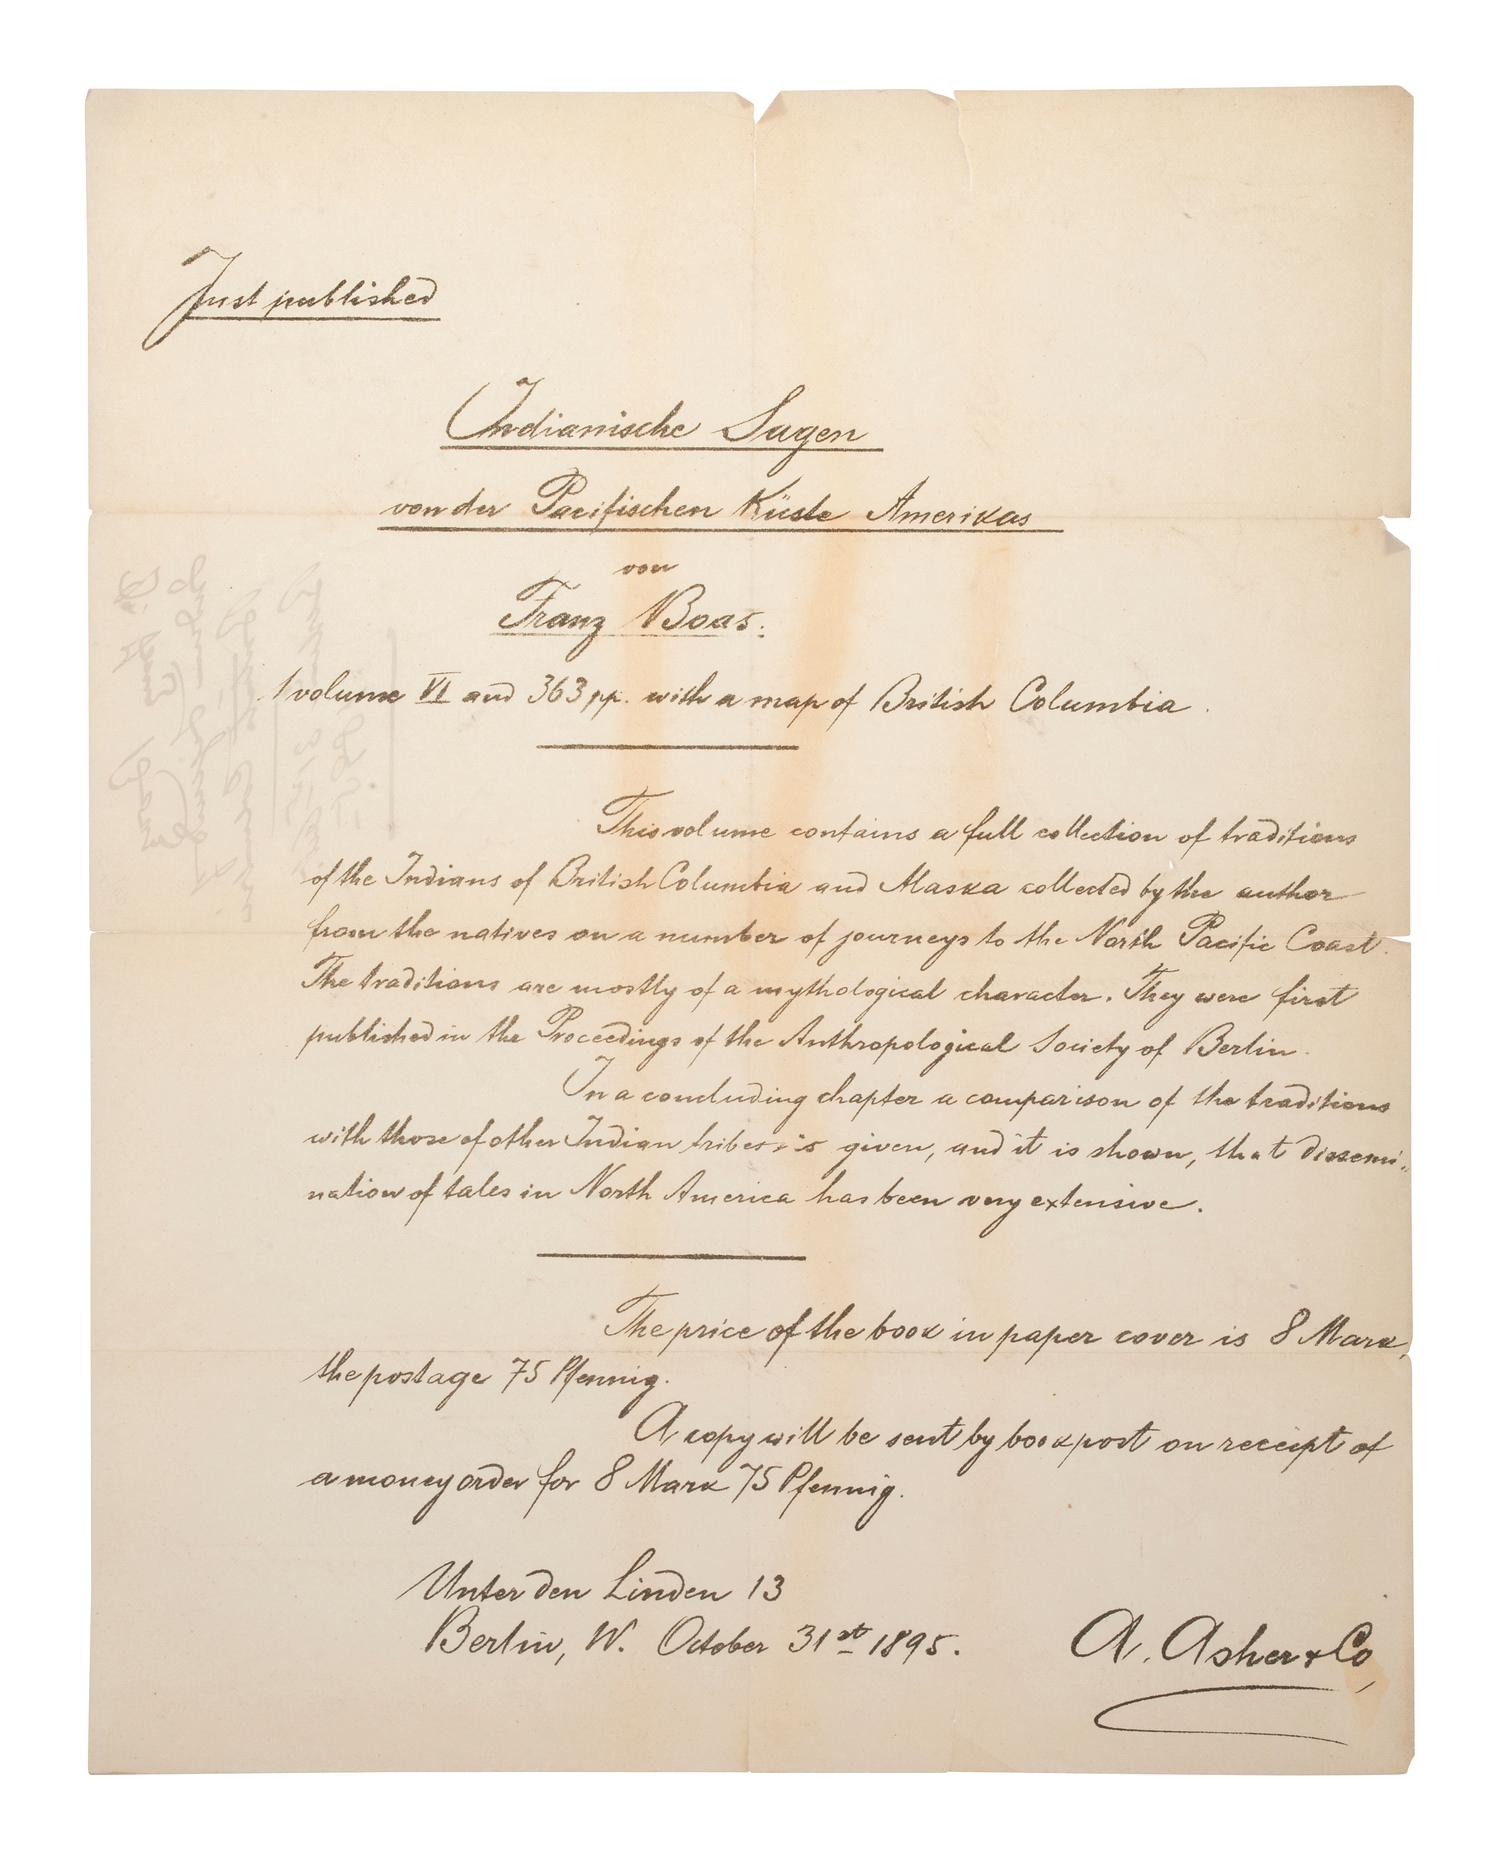 Just published
Indianische Sagen
von der Pacifischen Küste Amerikas
von
Franz Boas.
1 volume VI and 363 pp. with a map of British Columbia.
This volume contains a full collection of traditions
of the Indians of British Columbia and Alaska collected by the author
from the natives on a number of journeys to the North Pacific Coast.
The traditions are mostly of a mythological character. They were first
published in the Proceedings of the Anthropological Society of Berlin.
In a concluding chapter a comparison of the traditions
with those of other Indian tribes is given, and it is shown, that dissemi-
nation of tales in North America has been very extensive.
The price of the book in paper cover is 8 Mark,
the postage 75 Pfennig.
A copy will be sent by bookpost on receipt of
a money order for 8 Mark 75 Pfennig.
Unter den Linden 13
Berlin, W. October 31st 1895.
A. Asher & Co,